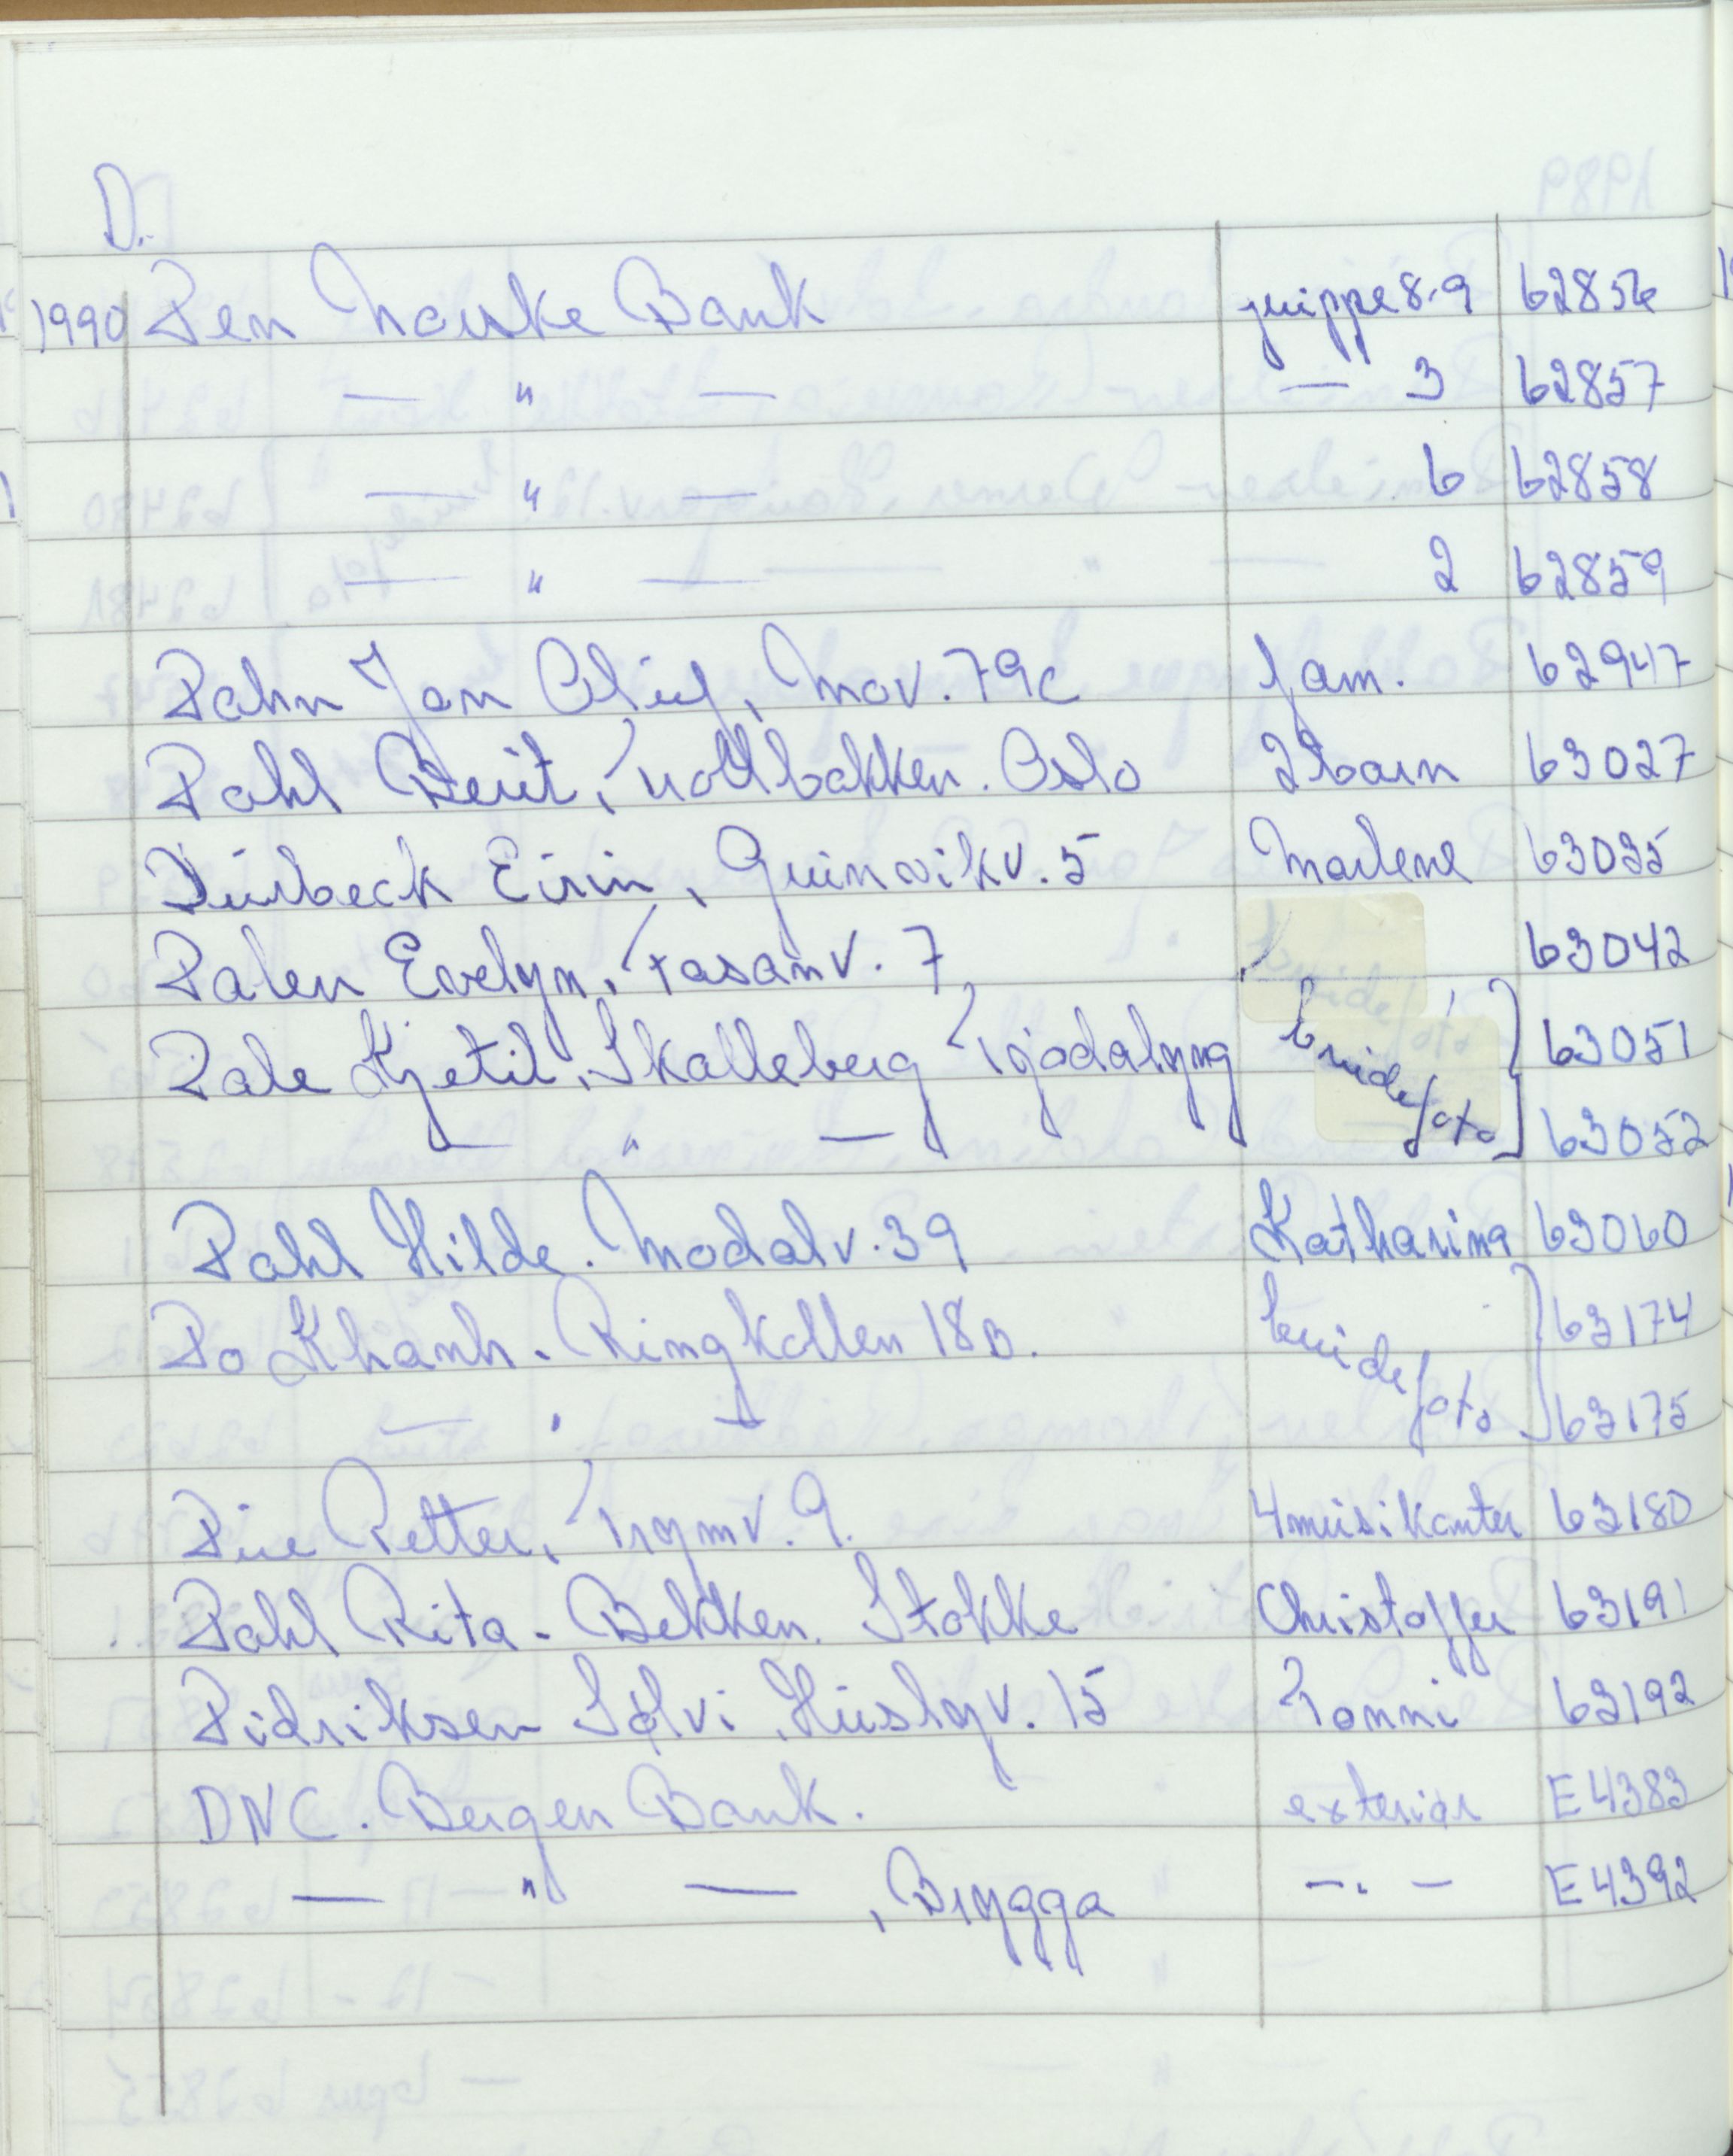 D.
1990 Den Norske Bank gruppe 8-9 62856
— " — — 3 62857
— " — 6 62858
— " — 2 62859
Dahn Jan Oluf, Mov. 79c fam. 62947
Dahl Berit, Trollbakken. Oslo 2 barn 63027
Durbeck Eirin, Grinivikv. 5 Marlene 63035
Dalen Evelyn, Fasanv. 7 63042
Dale Kjetil, Skalleberg Tjodalyng brudefoto 63051
— " — 63052
Dahl Hilde. Modalv. 39 Katharina 63060
Do Khanh. Ringkollen 18B. brudefoto 63174
— " — 63175
Due Petter, Trymv. 9. 4 musikanter 63180
Dahl Rita - Bekken. Stokke Christoffer 63191
Didriksen Sølvi, Husbyv. 15 Tonni 63192
DNC. Bergen Bank. exteriør E 4383
— " — , Brygga — " — E 4392